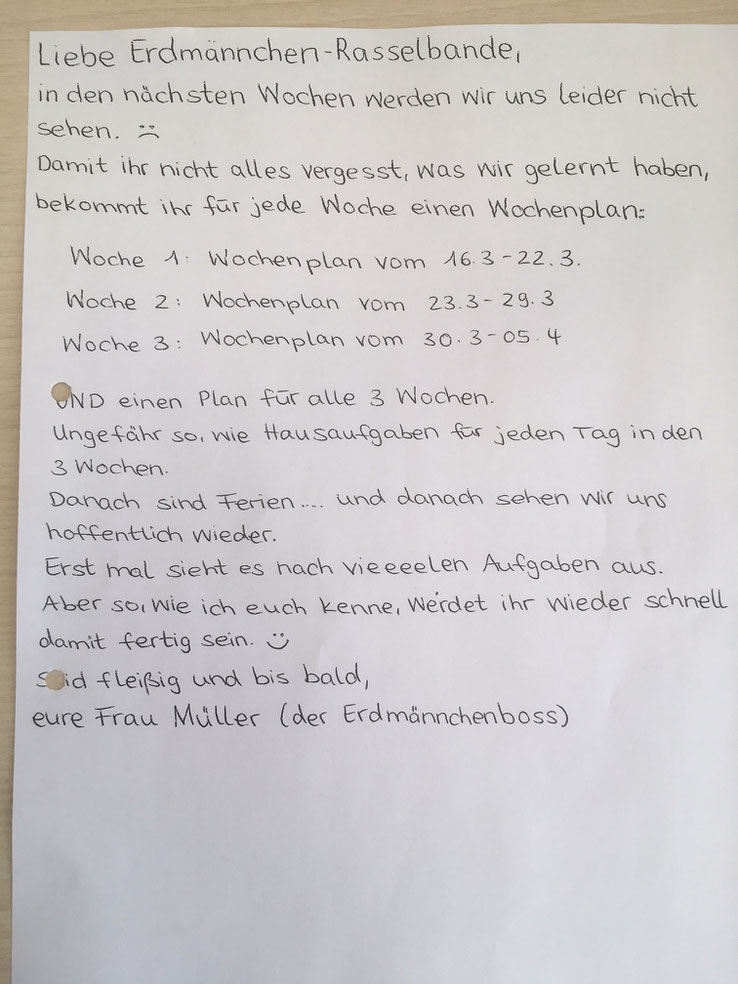 Liebe Erdmännchen-Rasselbande,
in den nächsten Wochen werden wir uns leider nicht
sehen. :(
Damit ihr nicht alles vergesst, was wir gelernt haben,
bekommt ihr für jede Woche einen Wochenplan:
Woche 1: Wochenplan vom 16.3-22.3.
Woche 2: Wochenplan vom 23.3-29.3
Woche 3: Wochenplan vom 30.3-05.4
UND einen Plan für alle 3 Wochen.
Ungefähr so, wie Hausaufgaben für jeden Tag in den
3 Wochen.
Danach sind Ferien.... und danach sehen wir uns
hoffentlich wieder.
Erst mal sieht es nach vieeeelen Aufgaben aus.
Aber so, wie ich euch kenne, werdet ihr wieder schnell
damit fertig sein. :)
Seid fleißig und bis bald,
eure Frau Müller (der Erdmännchenboss)